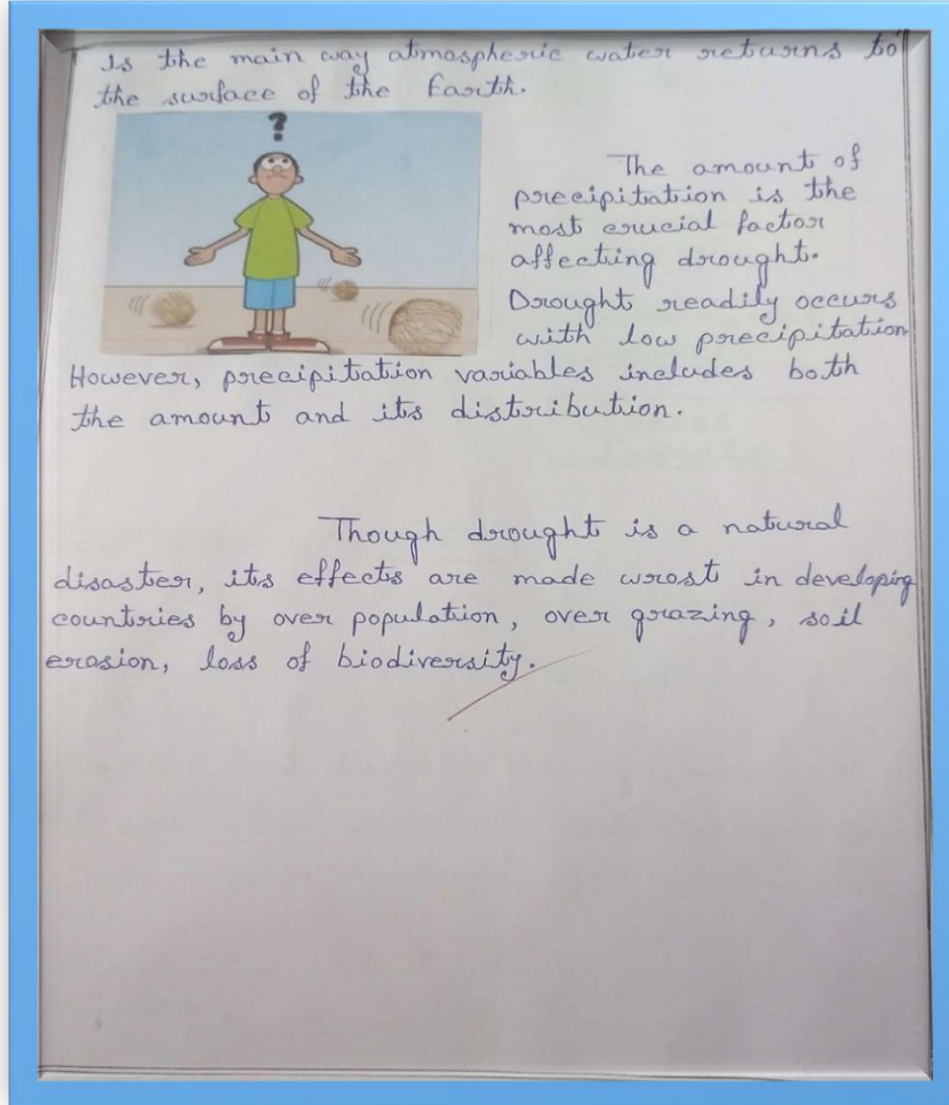 Is the main way atmospheric water returns to
the surface of the Earth.
?
The amount of
precipitation is the
most crucial factor
affecting drought.
Drought readily occurs
with low precipitation
However, precipitation variables includes both
the amount and its distribution.
Though drought is a natural
disaster, its effects are made wrost in developing
countries by over population, over grazing, soil
erosion, loss of biodiversity.